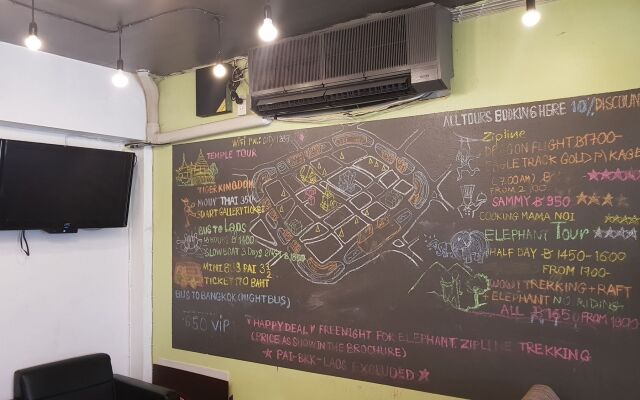 WIFI PW: CITY 1357
TEMPLE TOUR
TIGER KINGDOM
MOUY THAI 350
3D ART GALLERY TICKET
BUS TO LAOS
SLOW BOAT 3 Days
MINI BUS PAI 3½
TICKET 170 BAHT
BUS TO BANGKOK (NIGHT BUS)
650 VIP
ALL TOURS BOOKING HERE 10% DISCOUNT
Zipline
DRAGON FLIGHT B1700-
EAGLE TRACK GOLD PACKAGE
(7.00AM) B
SAMMY B 950
COOKING MAMA NOI
ELEPHANT Tour
HALF DAY B 1450-1600
FROM 1700-
TREKKING + RAFT
ELEPHANT NO RIDING
ALL B 1650 FROM 1800
♥ HAPPY DEAL ♥ FREE NIGHT FOR ELEPHANT. ZIPLINE TREKKING
(PRICE AS SHOW IN THE BROCHURE)
★ PAI-BKK-LAOS EXCLUDED ★